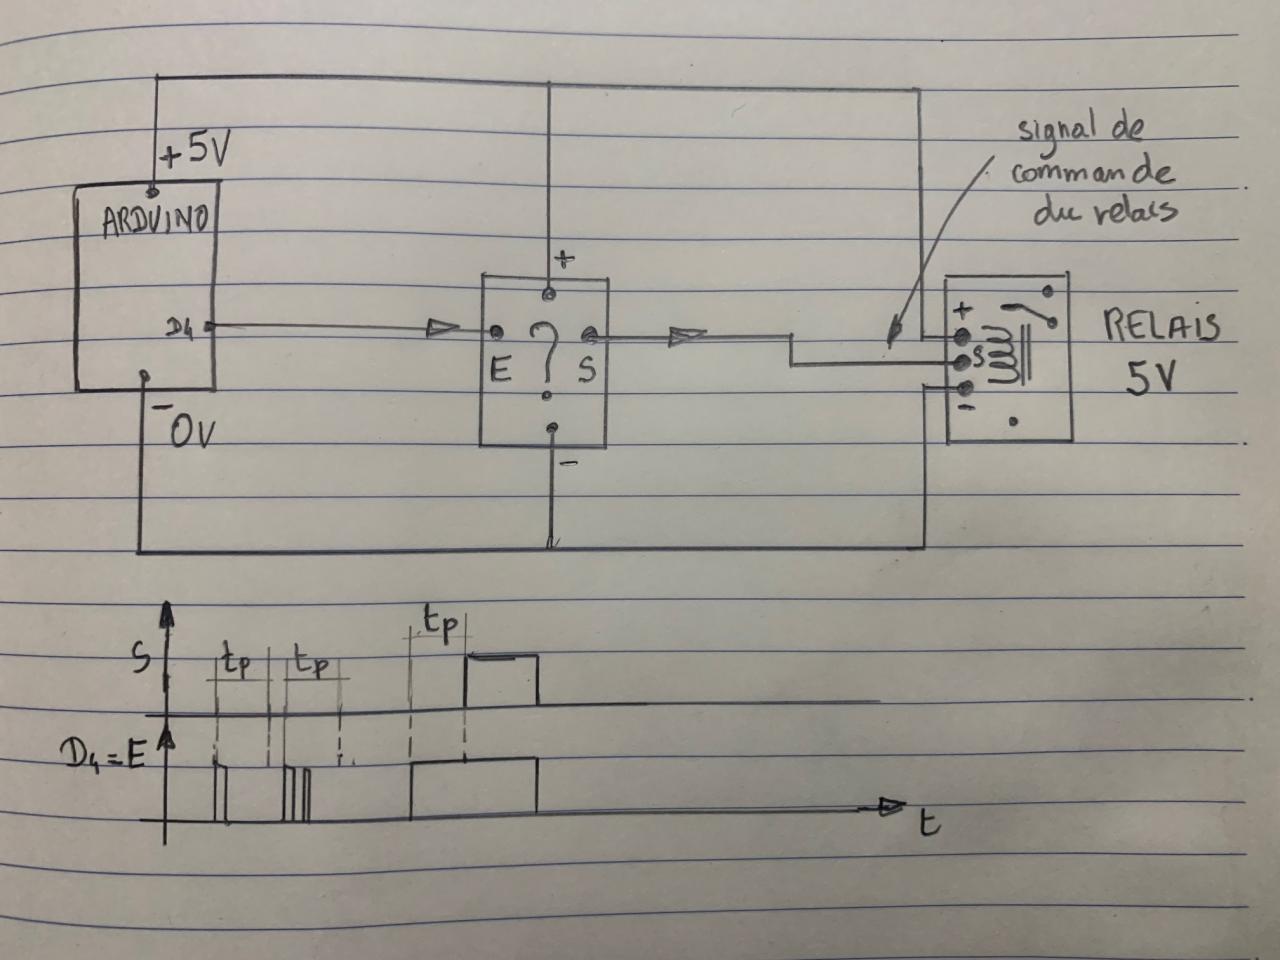 +5V
ARDUINO
D4
- 0V
+
E ? S
-
signal de
commande
du relais
+
S
-
RELAIS
5V
tp
S tp tp
D4=E
t